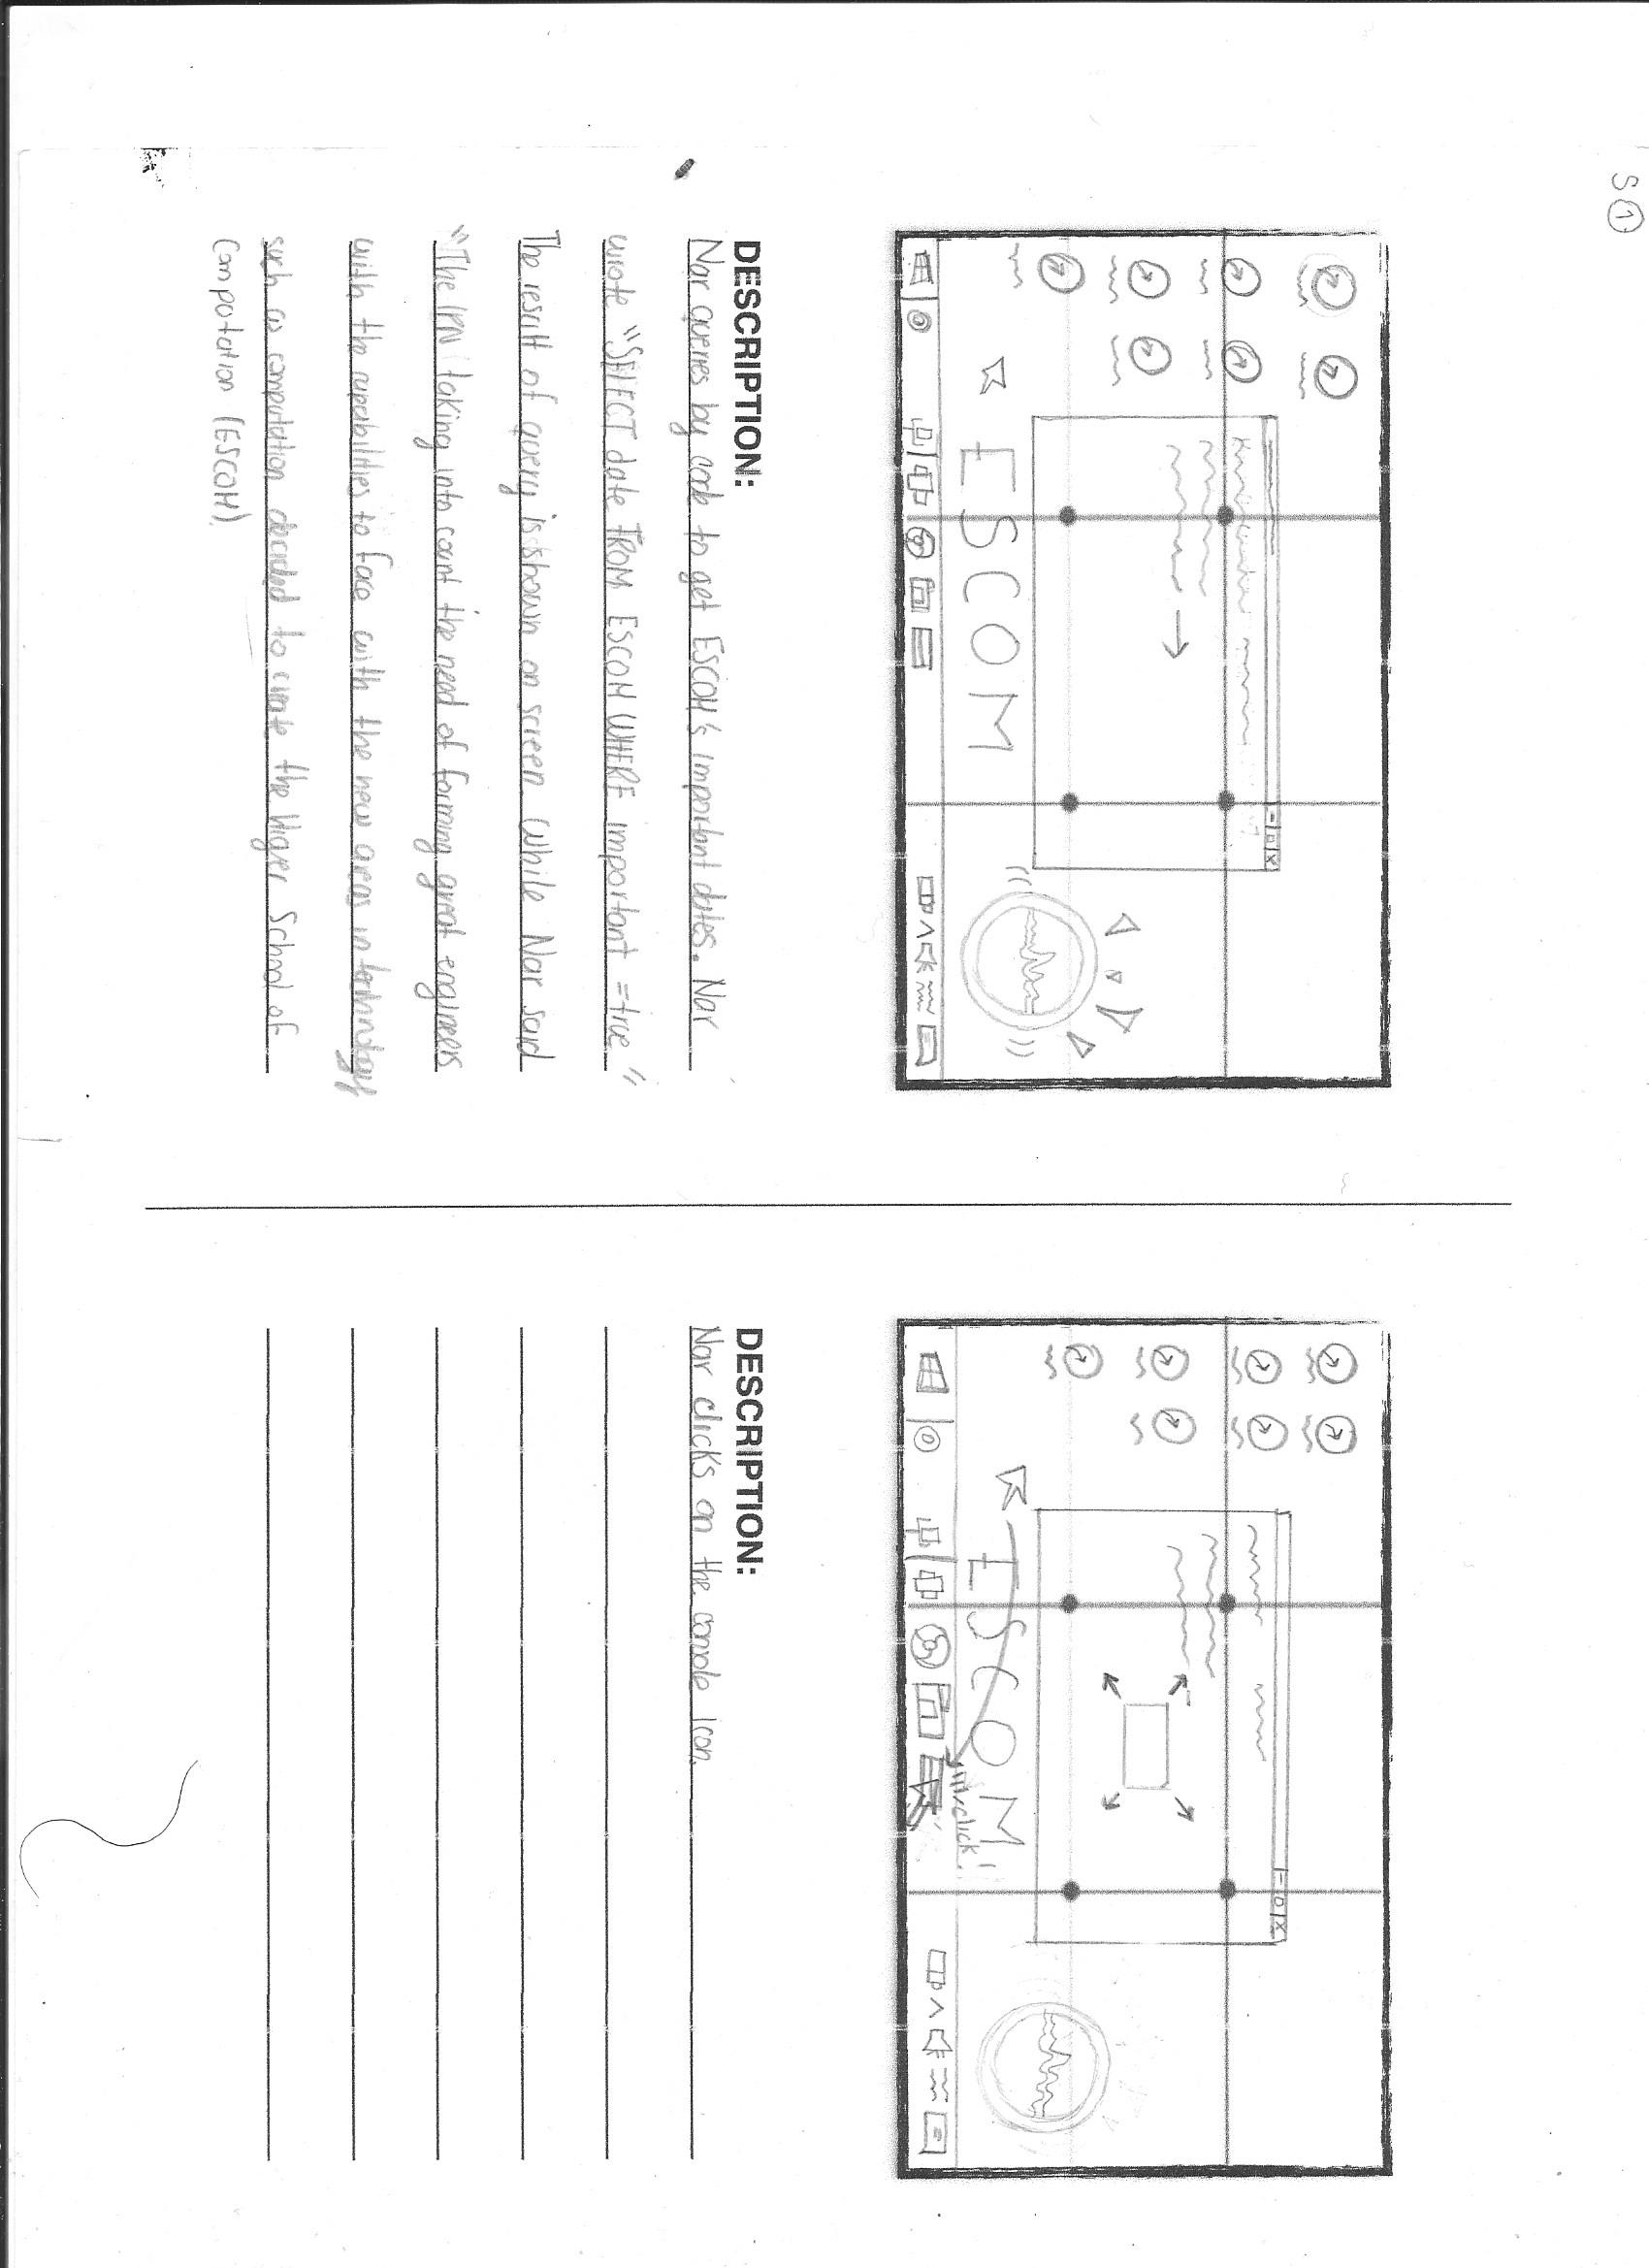 S 1
ESCOM
DESCRIPTION:
Nar queries by code to get ESCOM's important dates. Nar
wrote "SELECT date FROM ESCOM WHERE important = true"
The result of query is shown on screen while Nar said
"The IPN taking into cont the need of forming great engineers
with the capabilities to face with the new areas in technology
such as computation decided to create the Higer School of
Computation (ESCOM).
ESCOM
click!
DESCRIPTION:
Nar clicks on the console Icon.